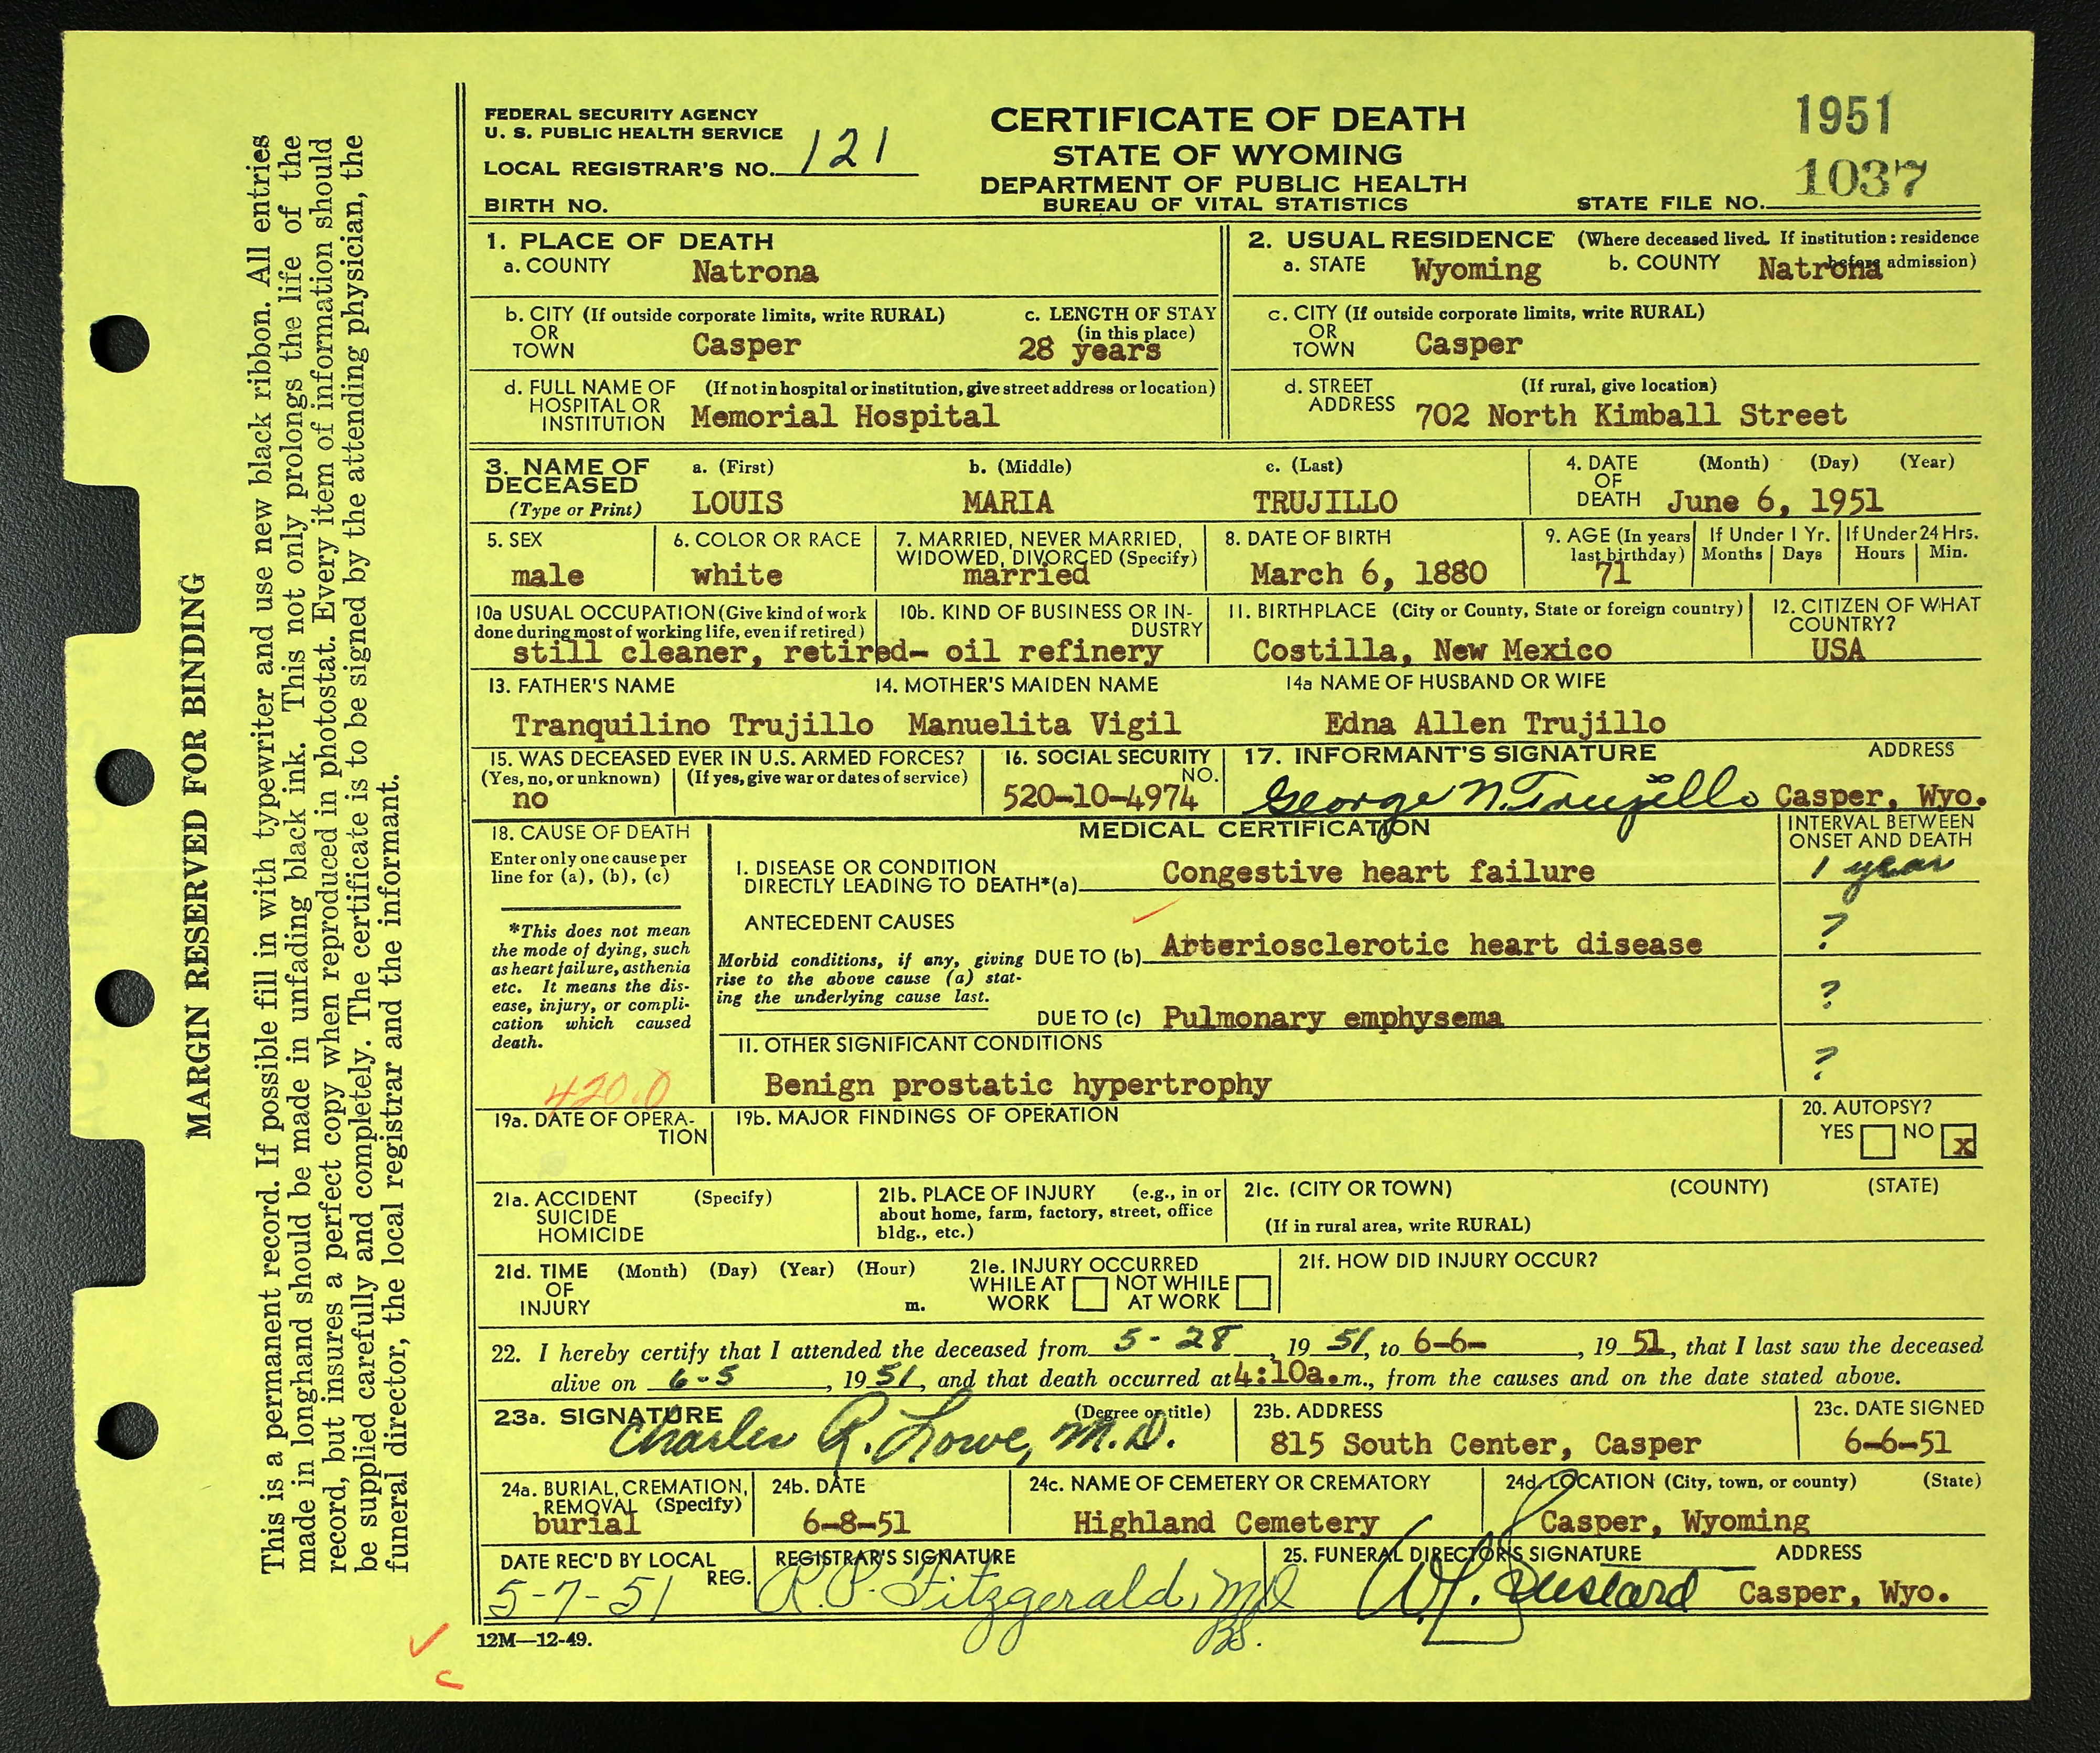 MARGIN RESERVED FOR BINDING
This is a permanent record. If possible fill in with typewriter and use new black ribbon. All entries
made in longhand should be made in unfading black ink. This not only prolongs the life of the
record, but insures a perfect copy when reproduced in photostat. Every item of information should
be supplied carefully and completely. The certificate is to be signed by the attending physician, the
funeral director, the local registrar and the informant.
FEDERAL SECURITY AGENCY
U. S. PUBLIC HEALTH SERVICE
LOCAL REGISTRAR'S NO. 121
BIRTH NO.
CERTIFICATE OF DEATH
STATE OF WYOMING
DEPARTMENT OF PUBLIC HEALTH
BUREAU OF VITAL STATISTICS
1951
STATE FILE NO. 1037
1. PLACE OF DEATH
a. COUNTY Natrona
2. USUAL RESIDENCE (Where deceased lived. If institution: residence before admission)
a. STATE Wyoming b. COUNTY Natrona
b. CITY (If outside corporate limits, write RURAL)
OR
TOWN Casper
c. LENGTH OF STAY
(in this place)
28 years
c. CITY (If outside corporate limits, write RURAL)
OR
TOWN Casper
d. FULL NAME OF (If not in hospital or institution, give street address or location)
HOSPITAL OR
INSTITUTION Memorial Hospital
d. STREET (If rural, give location)
ADDRESS 702 North Kimball Street
3. NAME OF DECEASED
(Type or Print)
a. (First) b. (Middle) c. (Last)
LOUIS MARIA TRUJILLO
4. DATE (Month) (Day) (Year)
OF
DEATH June 6, 1951
5. SEX
male
6. COLOR OR RACE
white
7. MARRIED, NEVER MARRIED,
WIDOWED, DIVORCED (Specify)
married
8. DATE OF BIRTH
March 6, 1880
9. AGE (In years
last birthday)
71
If Under 1 Yr.
Months Days
If Under 24 Hrs.
Hours Min.
10a USUAL OCCUPATION (Give kind of work
done during most of working life, even if retired)
still cleaner, retired-
10b. KIND OF BUSINESS OR IN-
DUSTRY
oil refinery
11. BIRTHPLACE (City or County, State or foreign country)
Costilla, New Mexico
12. CITIZEN OF WHAT
COUNTRY?
USA
13. FATHER'S NAME
Tranquilino Trujillo
14. MOTHER'S MAIDEN NAME
Manuelita Vigil
14a NAME OF HUSBAND OR WIFE
Edna Allen Trujillo
15. WAS DECEASED EVER IN U.S. ARMED FORCES?
(Yes, no, or unknown) (If yes, give war or dates of service)
no
16. SOCIAL SECURITY
NO.
520-10-4974
17. INFORMANT'S SIGNATURE ADDRESS
George N. Trujillo Casper, Wyo.
18. CAUSE OF DEATH
Enter only one cause per
line for (a), (b), (c)
*This does not mean
the mode of dying, such
as heart failure, asthenia
etc. It means the dis-
ease, injury, or compli-
cation which caused
death.
420.0
MEDICAL CERTIFICATION
INTERVAL BETWEEN
ONSET AND DEATH
I. DISEASE OR CONDITION
DIRECTLY LEADING TO DEATH*(a) Congestive heart failure 1 year
ANTECEDENT CAUSES
Morbid conditions, if any, giving
rise to the above cause (a) stat-
ing the underlying cause last.
DUE TO (b) Arteriosclerotic heart disease ?
DUE TO (c) Pulmonary emphysema ?
II. OTHER SIGNIFICANT CONDITIONS
Benign prostatic hypertrophy ?
19a. DATE OF OPERA-
TION
19b. MAJOR FINDINGS OF OPERATION
20. AUTOPSY?
YES NO x
21a. ACCIDENT (Specify)
SUICIDE
HOMICIDE
21b. PLACE OF INJURY (e.g., in or
about home, farm, factory, street, office
bldg., etc.)
21c. (CITY OR TOWN) (COUNTY) (STATE)
(If in rural area, write RURAL)
21d. TIME (Month) (Day) (Year) (Hour)
OF
INJURY m.
21e. INJURY OCCURRED
WHILE AT WORK NOT WHILE AT WORK
21f. HOW DID INJURY OCCUR?
22. I hereby certify that I attended the deceased from 5-28, 19 51, to 6-6-, 19 51, that I last saw the deceased
alive on 6-5, 19 51, and that death occurred at 4:10a.m., from the causes and on the date stated above.
23a. SIGNATURE (Degree or title)
Charles R. Lowe, M.D.
23b. ADDRESS
815 South Center, Casper
23c. DATE SIGNED
6-6-51
24a. BURIAL, CREMATION,
REMOVAL (Specify)
burial
24b. DATE
6-8-51
24c. NAME OF CEMETERY OR CREMATORY
Highland Cemetery
24d. LOCATION (City, town, or county) (State)
Casper, Wyoming
DATE REC'D BY LOCAL
REG.
5-7-51
REGISTRAR'S SIGNATURE
R.P. Fitzgerald, MD
25. FUNERAL DIRECTOR'S SIGNATURE ADDRESS
Casper, Wyo.
12M—12-49.